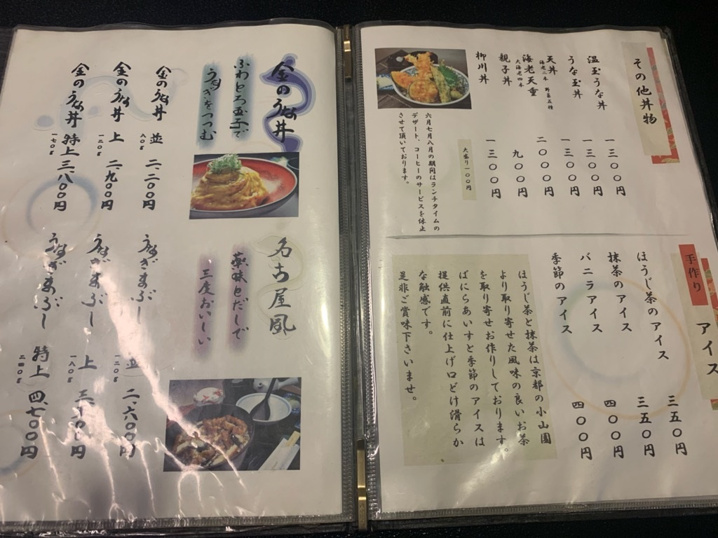 その他丼物
温玉うな丼 一三〇〇円
うな玉丼 一三〇〇円
天丼 海老二本 野菜五種 一三〇〇円
海老天重 大海老四本 二〇〇〇円
親子丼 九〇〇円
柳川丼 一三〇〇円
大盛り一〇〇円
六月七月八月の期間はランチタイムの
デザート、コーヒーのサービスを休止
させて頂いております。
手作り アイス
ほうじ茶のアイス 三五〇円
抹茶のアイス 三五〇円
バニラアイス 四〇〇円
季節のアイス 四〇〇円
ほうじ茶と抹茶は京都の小山園
より取り寄せた風味の良いお茶
を取り寄せお作りしております。
ばにらあいすと季節のアイスは
提供直前に仕上げ口どけ滑らか
な触感です。
是非ご賞味下さいませ。
金のうな丼
ふわとろ玉子で
うなぎをつつむ
金のうな丼 並 八〇g 二、二〇〇円
金のうな丼 上 一二〇g 二、九〇〇円
金のうな丼 特上 一七〇g 三、八〇〇円
名古屋風
薬味とだしで
三度おいしい
うなぎまぶし 並 一二〇g 二、六〇〇円
うなぎまぶし 上 一八〇g
うなぎまぶし 特上 二四〇g 四、七〇〇円